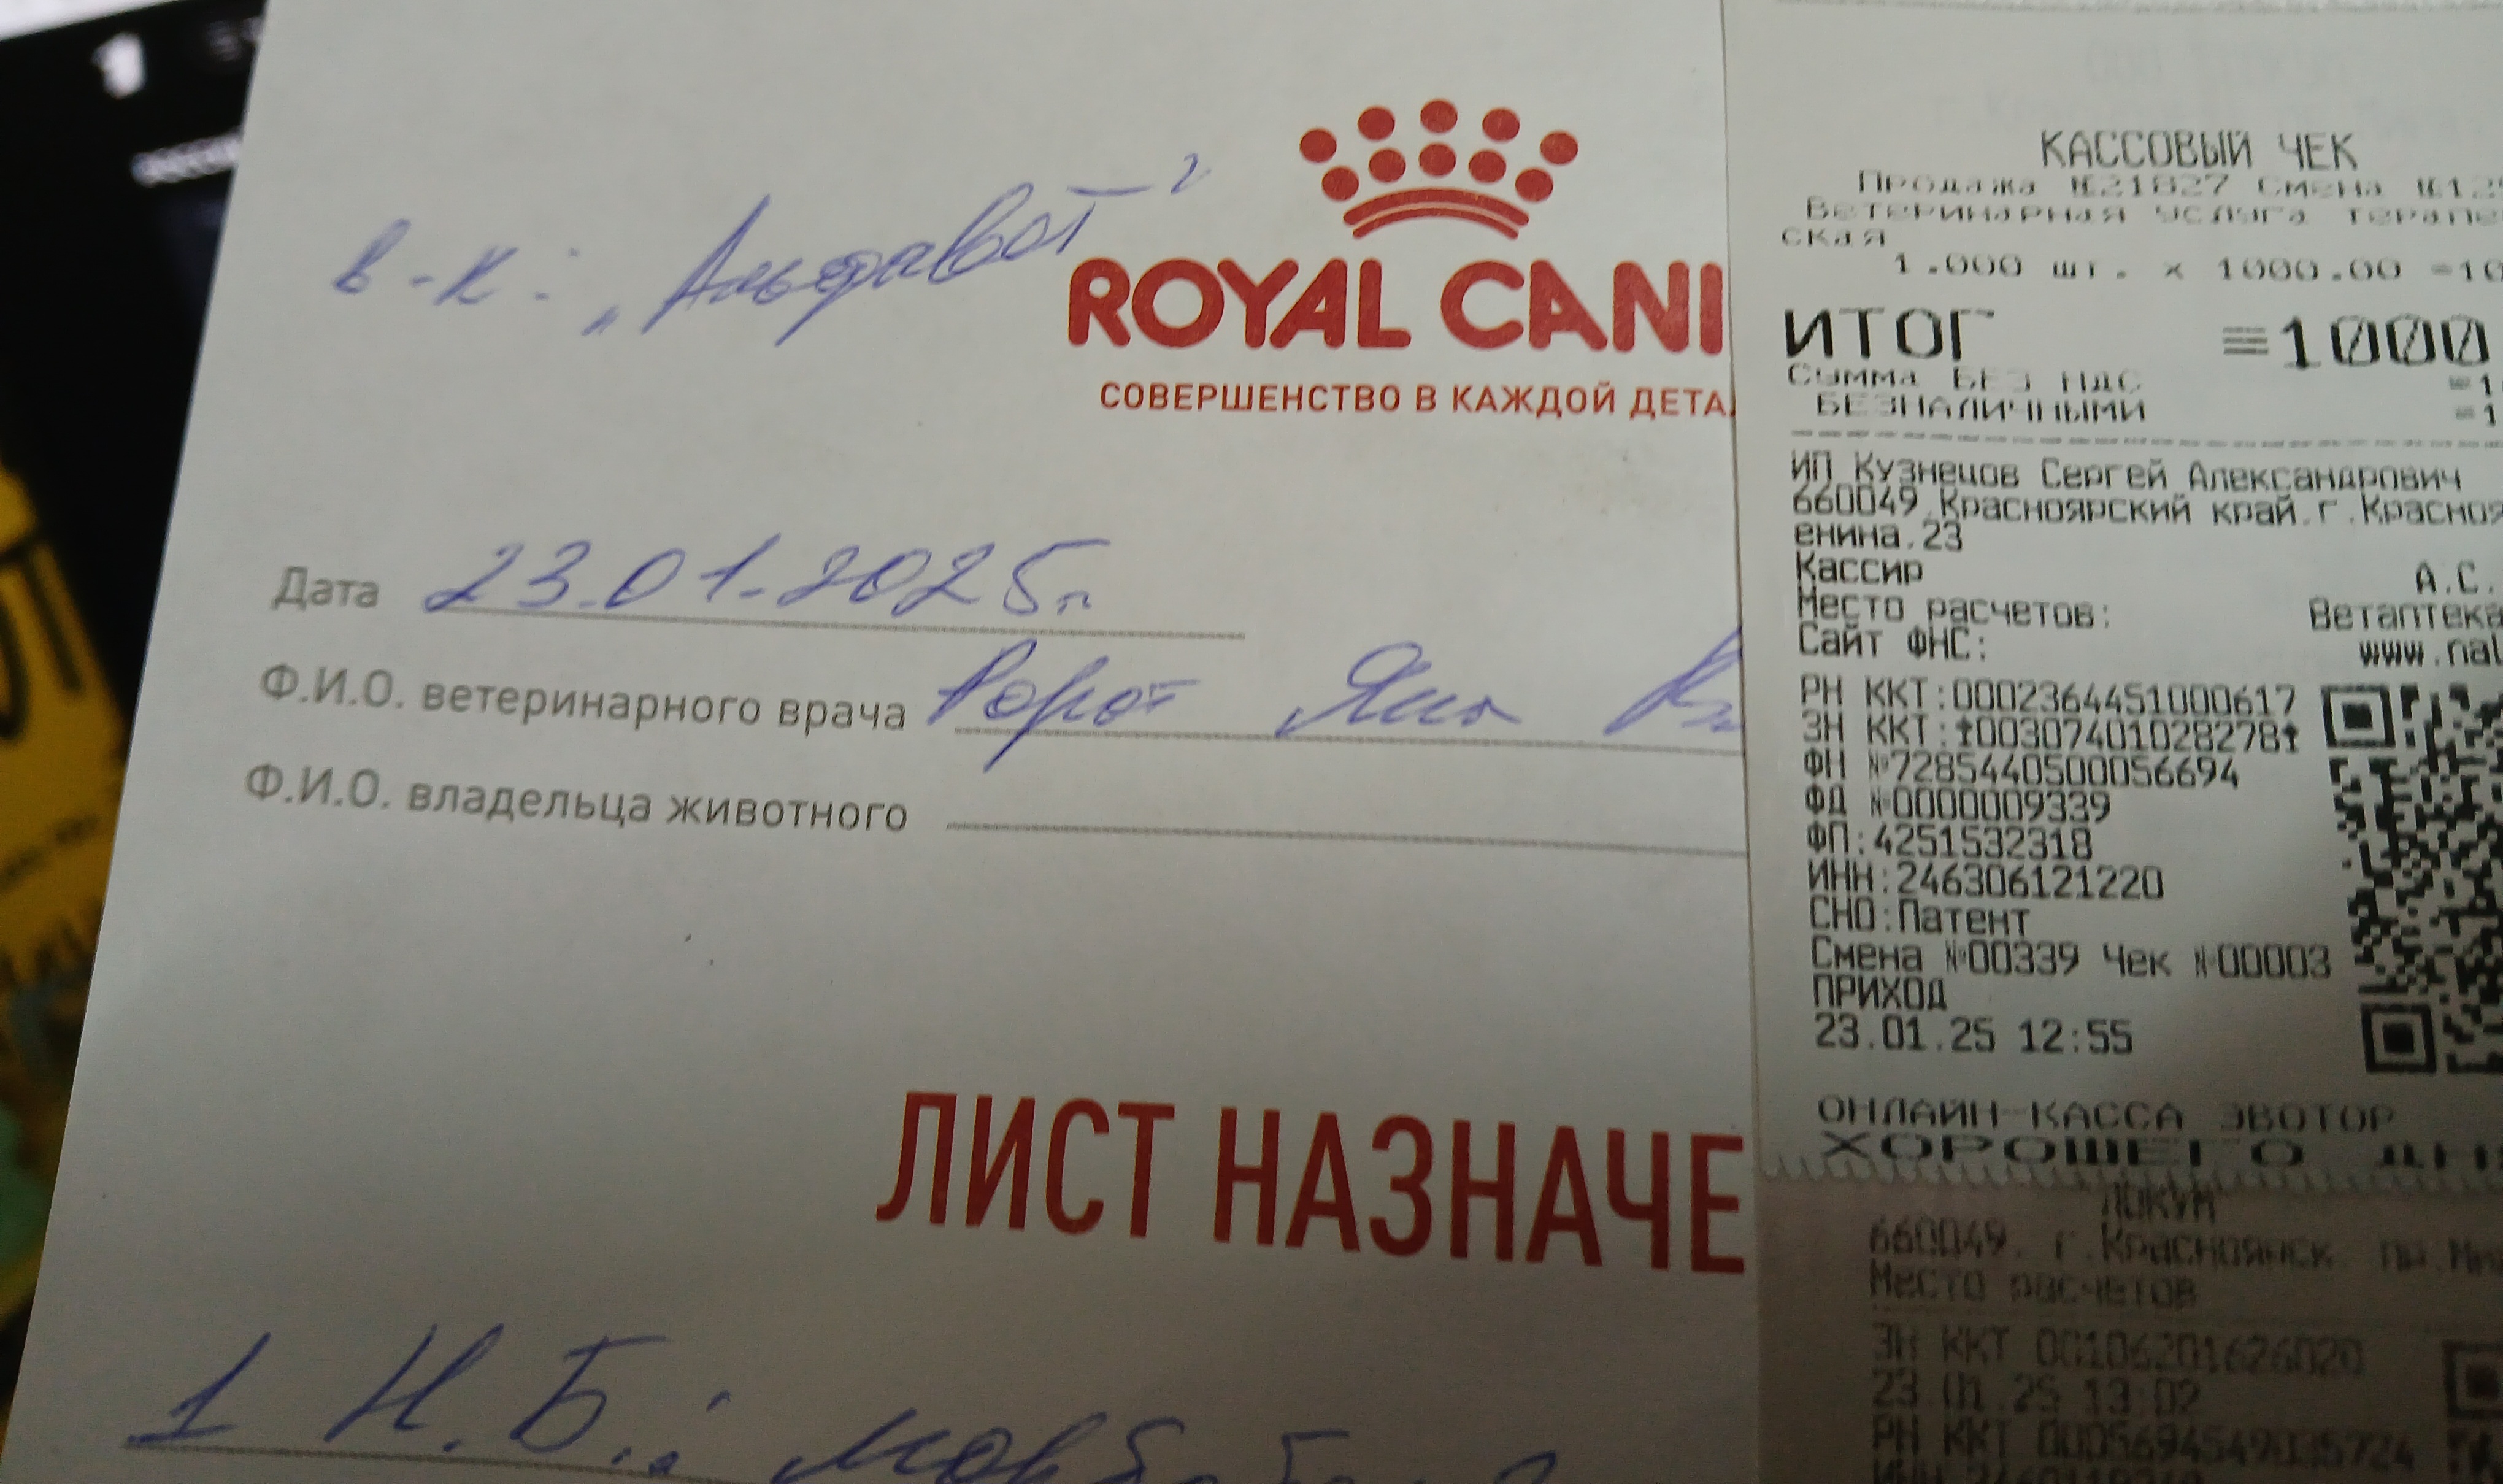 в-к: "Альфавет"
ROYAL CANI
СОВЕРШЕНСТВО В КАЖДОЙ ДЕТА
Дата 23.01.2025г
Ф.И.О. ветеринарного врача Ророт Яна
Ф.И.О. владельца животного
ЛИСТ НАЗНАЧЕ
1 Н.Б.:
КАССОВЫЙ ЧЕК
Продажа №21827 Смена
Ветеринарная услуга терапе
ская
1.000 шт. x 1000.00 =10
ИТОГ ≡1000
Сумма БЕЗ НДС =1
БЕЗНАЛИЧНЫМИ =1
ИП Кузнецов Сергей Александрович
660049,Красноярский край,г.Красноя
енина,23
Кассир А.С.
Место расчетов: Ветаптека
Сайт ФНС: www.nal
РН ККТ:0002364451000617
ЗН ККТ:↑00307401028278↑
ФН №7285440500056694
ФД №0000009339
ФП:4251532318
ИНН:246306121220
СНО:Патент
Смена №00339 Чек №00003
ПРИХОД
23.01.25 12:55
ОНЛАЙН-КАССА ЭВОТОР
ХОРОШЕГО ДН
660049, г.Красноярск, пр.Ми
Место расчетов
ЗН ККТ 00106201626020
23.01.25 13:02
РН ККТ